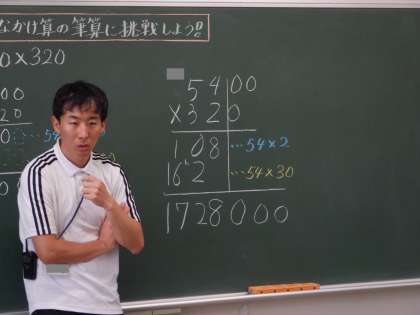 なかけ算の筆算に挑戦しよう!!
0×320
00
20
0
5400
×320
108 …54×2
162 …54×30
1728000